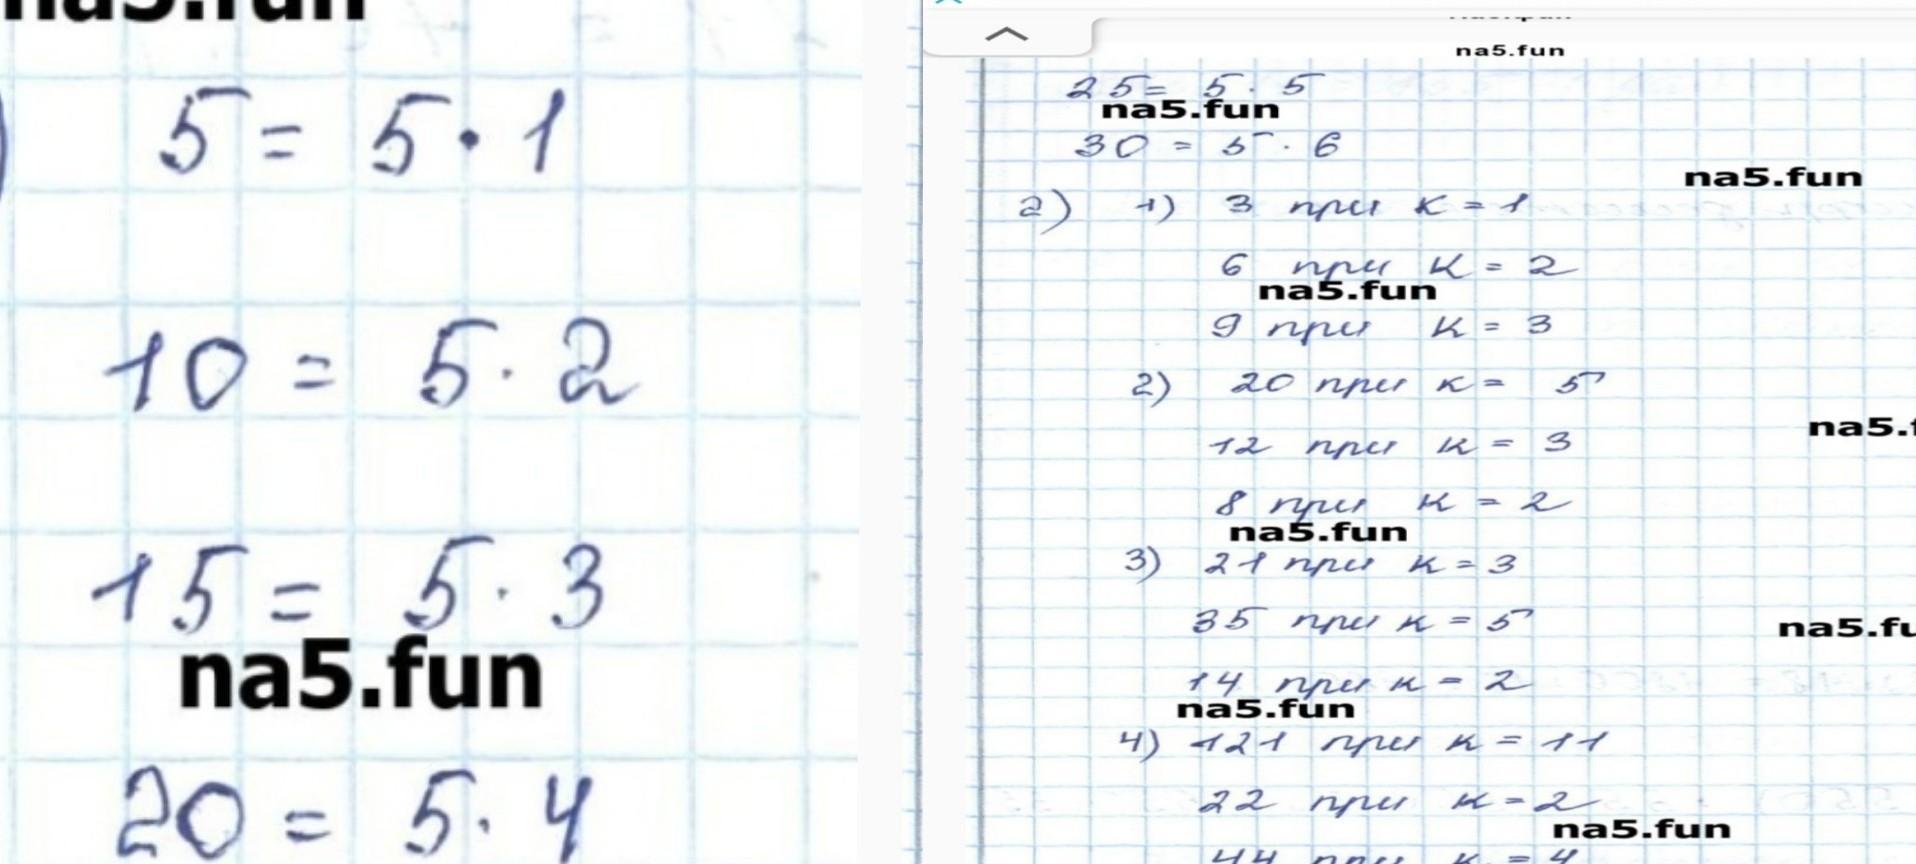 5 = 5 · 1
10 = 5 · 2
15 = 5 · 3
na5.fun
20 = 5 · 4
na5.fun
25 = 5 · 5
na5.fun
30 = 5 · 6
na5.fun
2) 1) 3 при к = 1
6 при к = 2
na5.fun
9 при к = 3
2) 20 при к = 5
na5.f
12 при к = 3
8 при к = 2
na5.fun
3) 21 при к = 3
35 при к = 5
na5.fu
14 при к = 2
na5.fun
4) 121 при к = 11
22 при к = 2
na5.fun
44 при к = 4